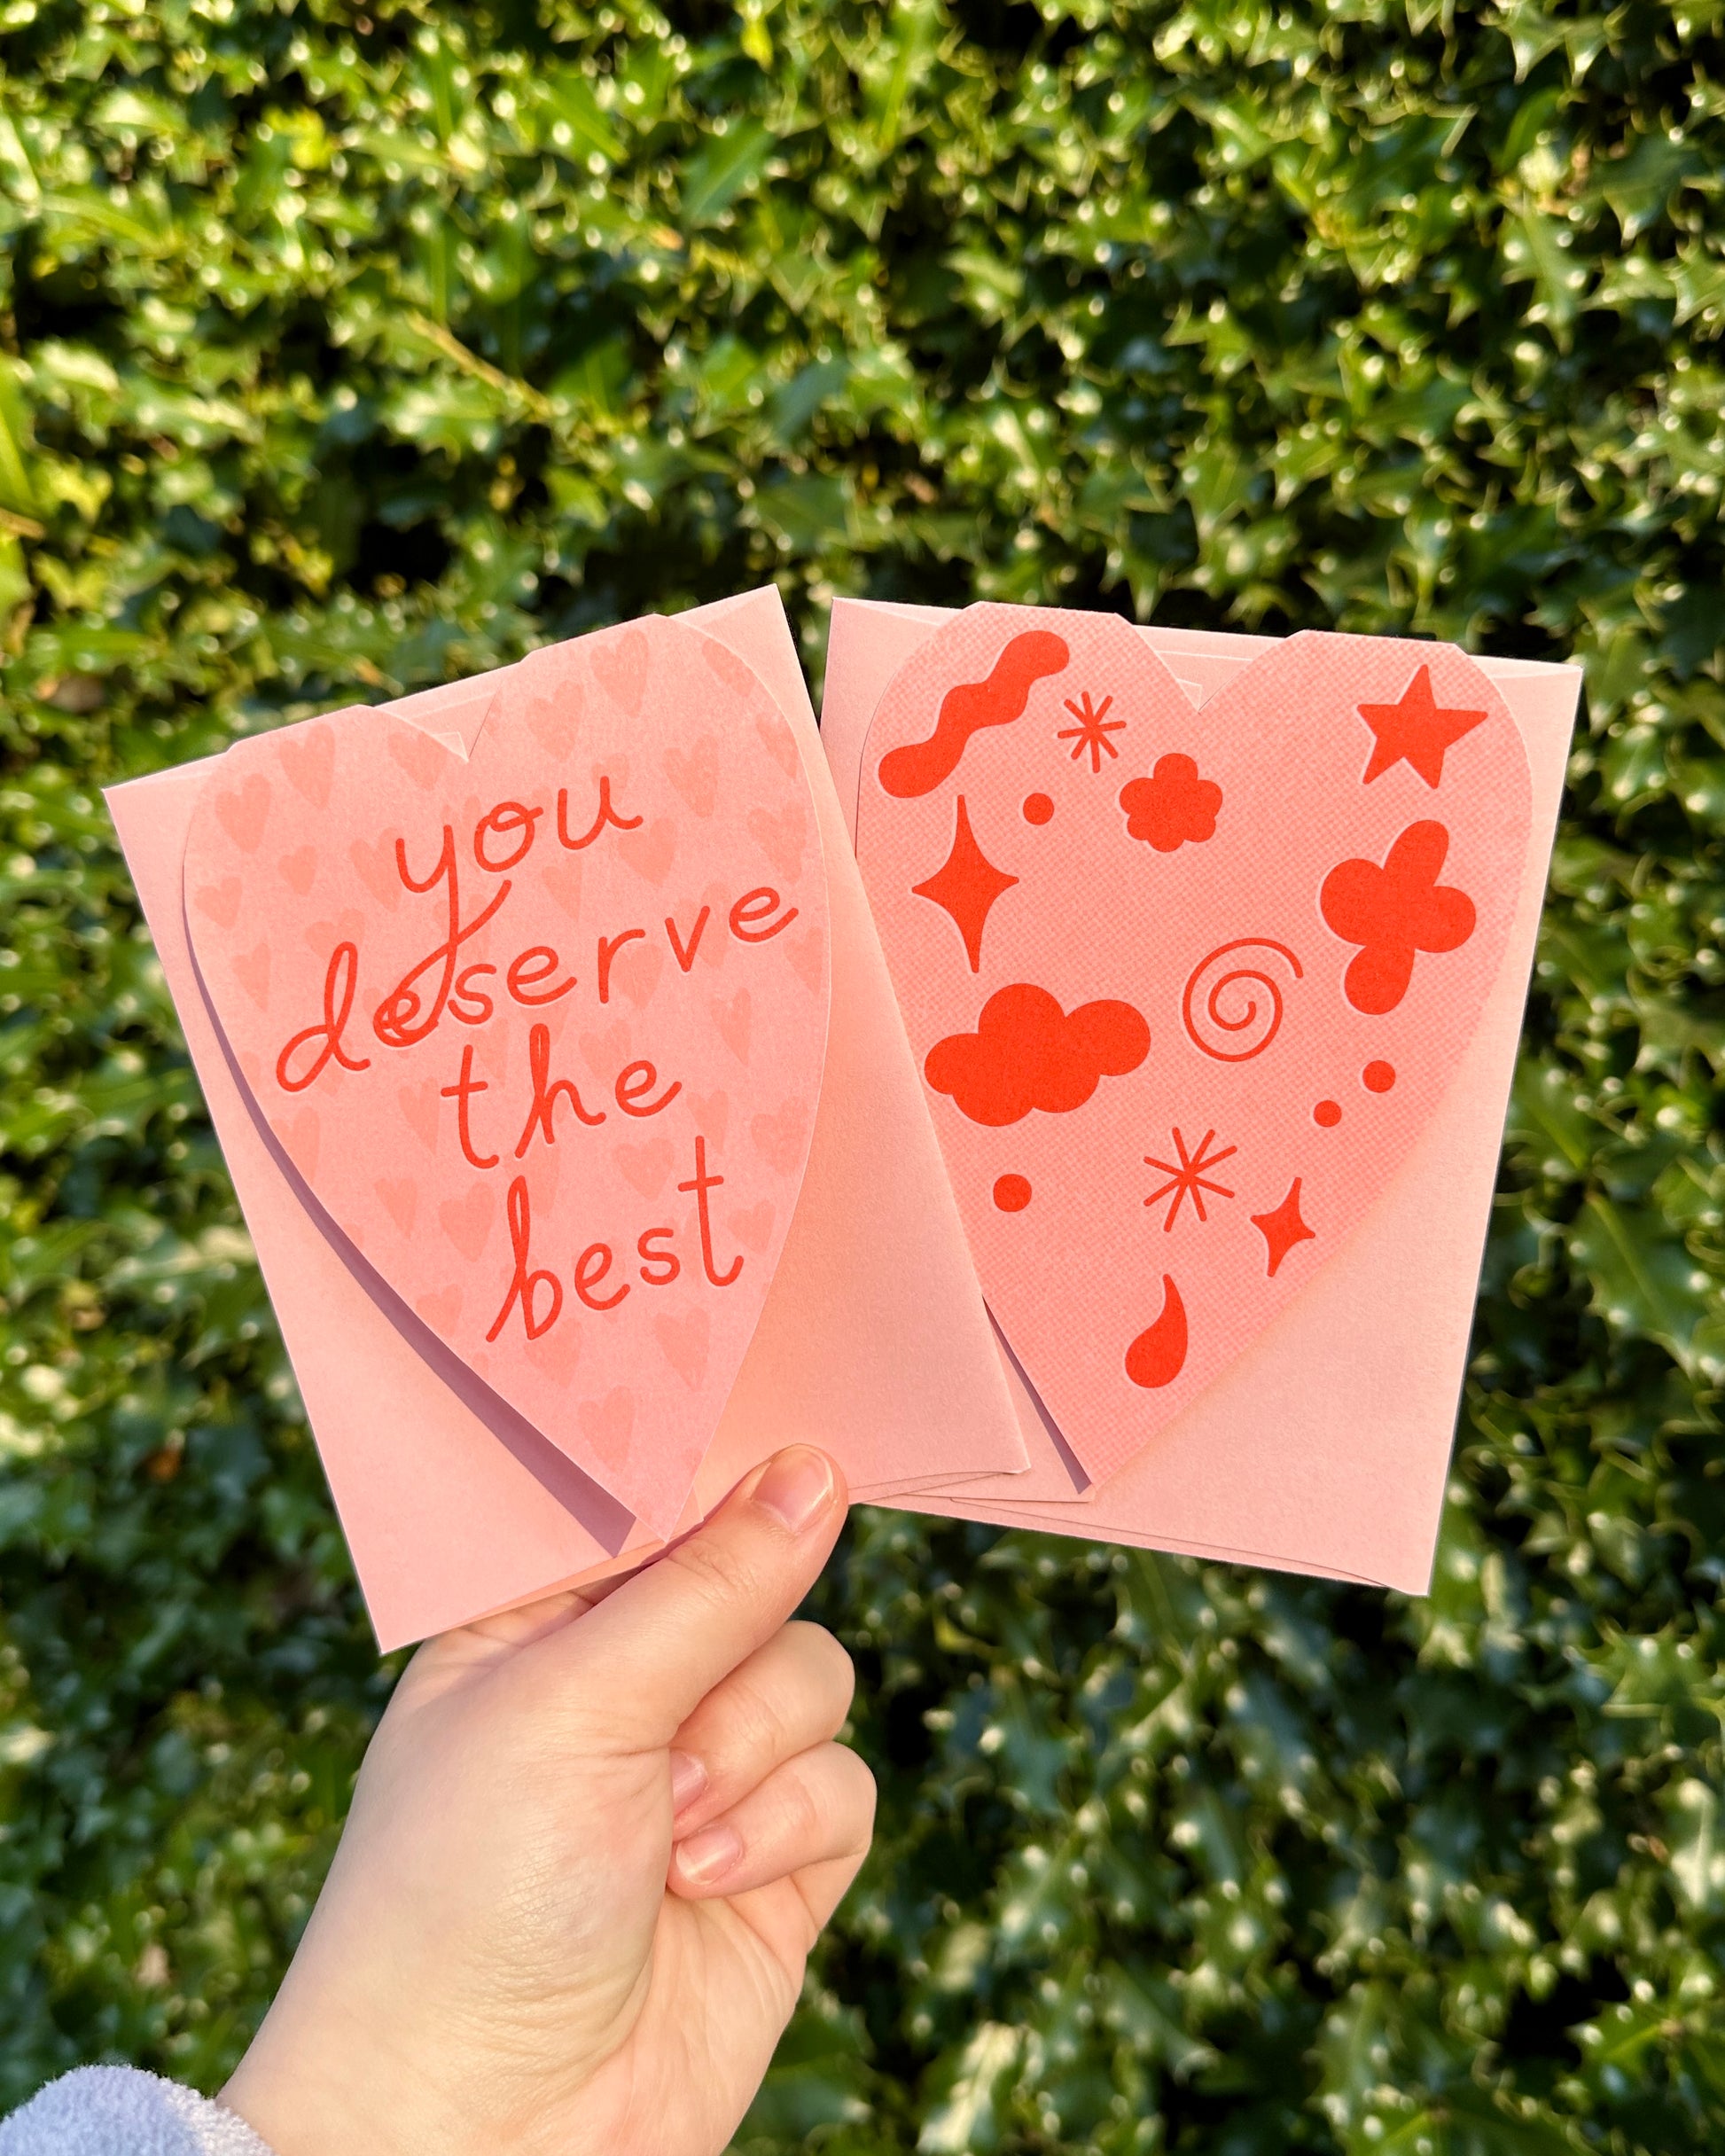 you
deserve
the
best